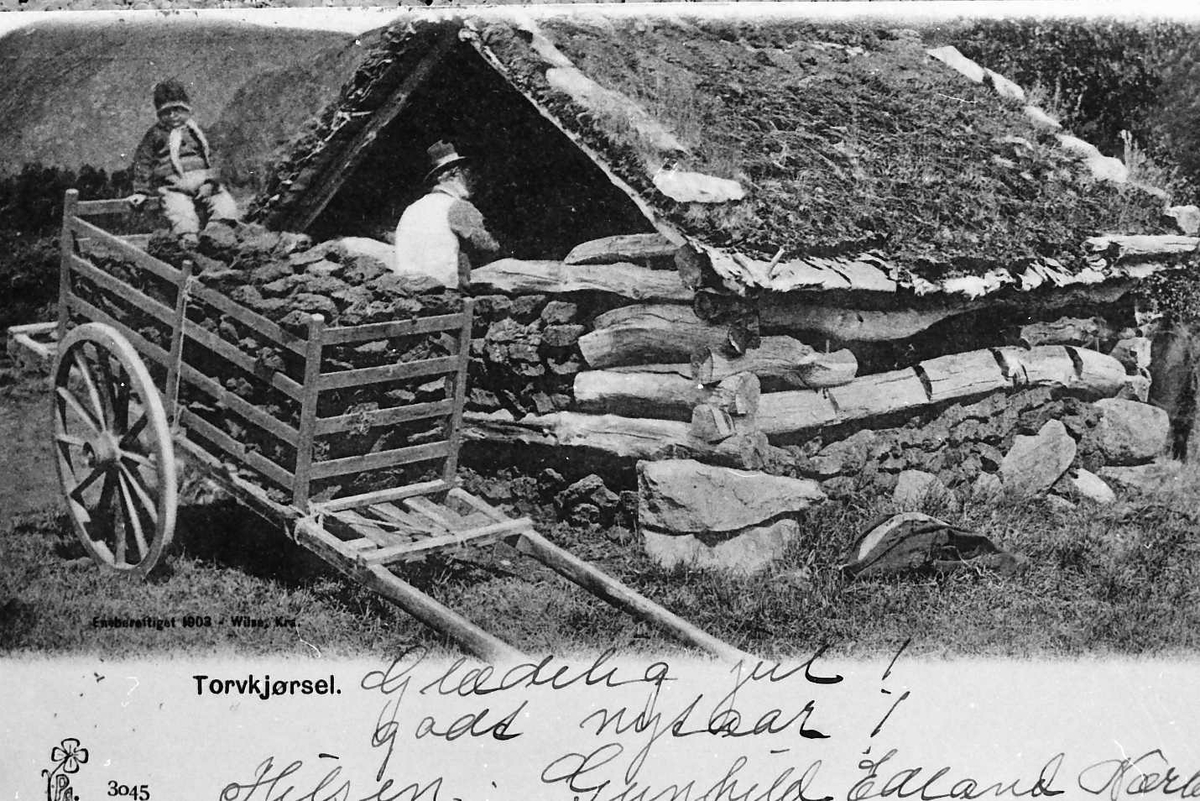 Eneberettiget 1903 - Wilse, Kra.
Torvkjørsel.
Glædelig jul!
godt nyt aar!
Pa. 3045
Hilsen. Gunhild Edland